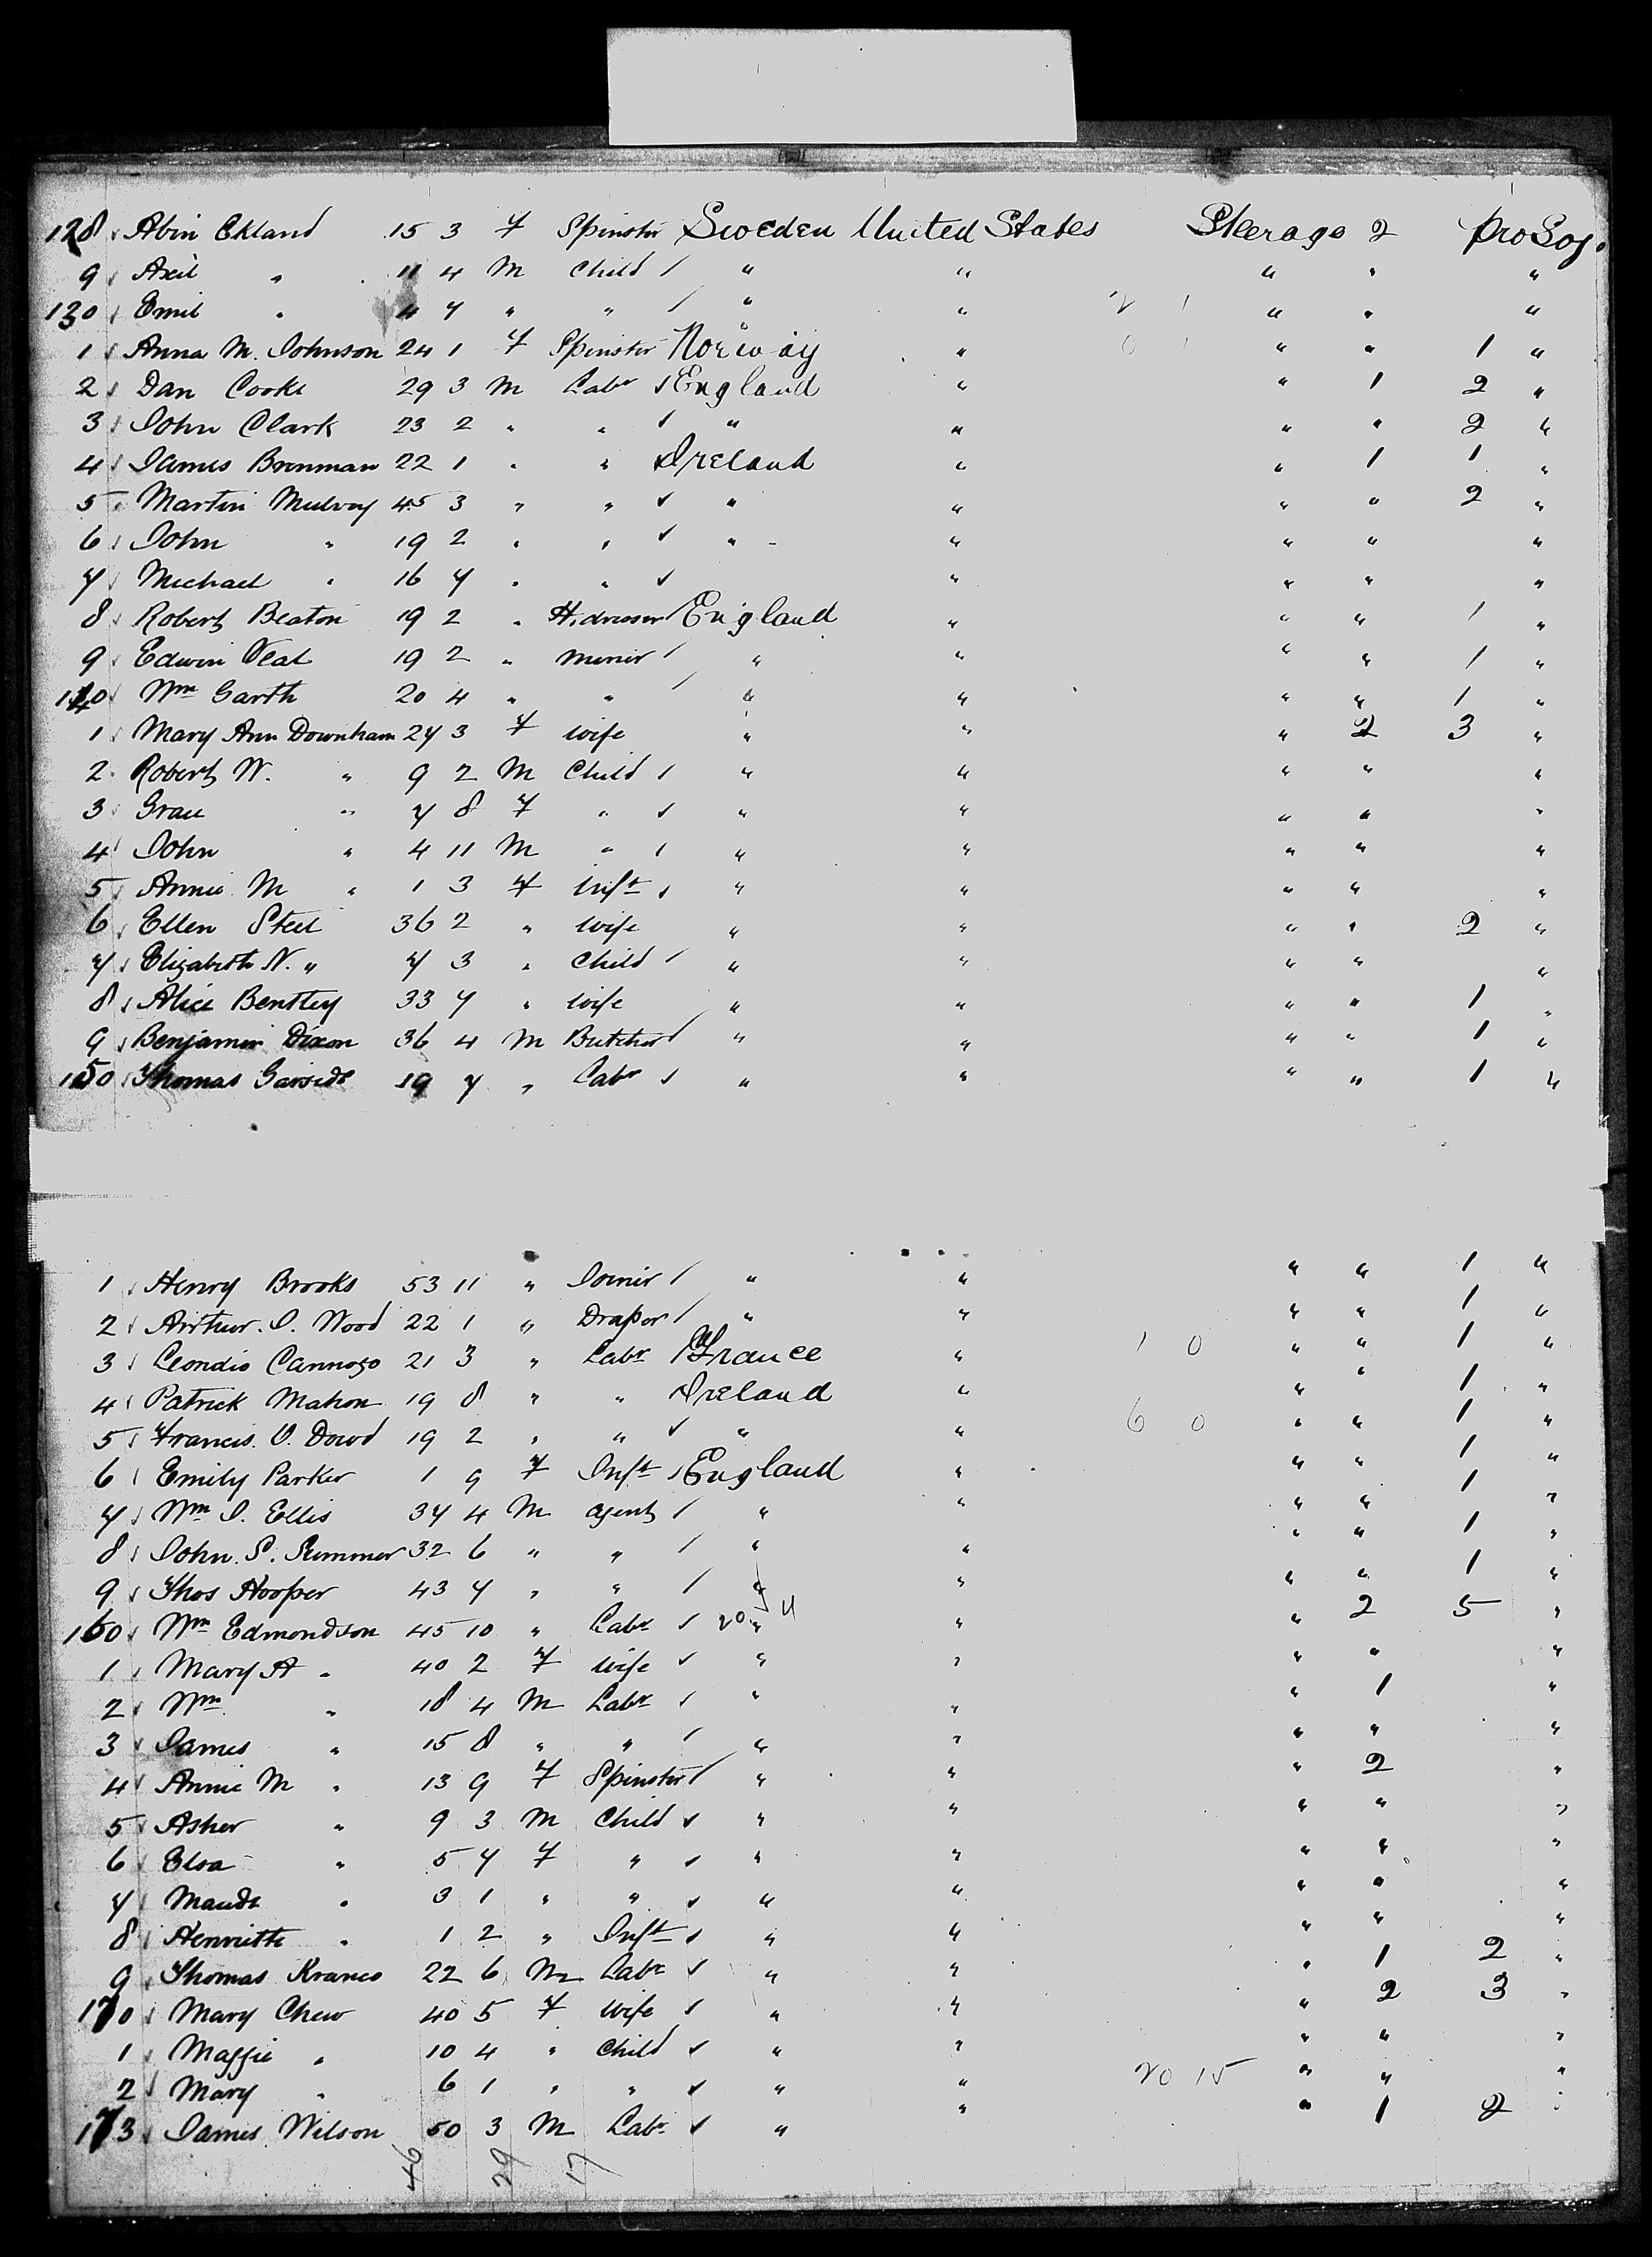 128 Abin Ekland 15 3 F Spinster Sweden United States Steerage 2 Pro Soj.
9 Axil " 11 4 M Child " " " " "
130 Emil " 4 7 " " " " 2 1 " " "
1 Anna M. Johnson 24 1 F Spinster Norway " 0 1 " " 1 "
2 Dan Cooke 29 3 M Labr England " " 1 2 "
3 John Clark 23 2 " " " " " " 2 "
4 James Brenman 22 1 " " Ireland " " 1 1 "
5 Martin Mulvey 45 3 " " " " " " 2 "
6 John " 19 2 " " " " " " "
7 Michael " 16 7 " " " " " "
8 Robert Beaton 19 2 " H.dresser England " " " 1 "
9 Edwin Veal 19 2 " Miner " " " " 1 "
140 Wm Garth 20 4 " " " " " " 1 "
1 Mary Ann Downham 27 3 F Wife " " " 2 3 "
2 Robert W. " 9 2 M Child " " " " "
3 Grace " 7 8 F " " " " " "
4 John " 4 11 M " " " " " "
5 Annie M " 1 3 F Inft " " " " "
6 Ellen Steel 36 2 " Wife " " " " 2 "
7 Elizabeth N. " 7 3 " Child " " " " "
8 Alice Bentley 33 7 " Wife " " " " 1 "
9 Benjamin Dixon 36 4 M Butcher " " " " 1 "
150 Thomas Garside 19 7 " Labr " " " " 1 "
1 Henry Brooks 53 11 " Joiner " " " " 1 "
2 Arthur. J. Wood 22 1 " Draper " " " " 1 "
3 Leondio Cannogo 21 3 " Labr France " 1 0 " " 1 "
4 Patrick Mahon 19 8 " " Ireland " " " 1 "
5 Francis. O. Dowd 19 2 " " " " 6 0 " " 1 "
6 Emily Parker 1 9 F Inft England " " " 1 "
7 Wm J. Ellis 37 4 M Agent " " " " 1 "
8 John. S. Summer 32 6 " " " " " " 1 "
9 Thos Hooper 43 7 " " " " " " 1 "
160 Wm Edmondson 45 10 " Labr 20 4 " " " 2 5 "
1 Mary A " 40 2 F Wife " " " " "
2 Wm " 18 4 M Labr " " " 1 "
3 James " 15 8 " " " " " " "
4 Annie M " 13 9 F Spinster " " " 2 "
5 Asher " 9 3 M Child " " " " "
6 Elsa " 5 7 F " " " " " "
7 Maude " 3 1 " " " " " " "
8 Henriette " 1 2 " Inft " " " " "
9 Thomas Kranes 22 6 M Labr " " " 1 2 "
170 Mary Chew 40 5 F Wife " " " 2 3 "
1 Maggie " 10 4 " Child " " " " "
2 Mary " 6 1 " " " " 20 15 " " "
173 James Wilson 50 3 M Labr " " " 1 2 "
46 29 17